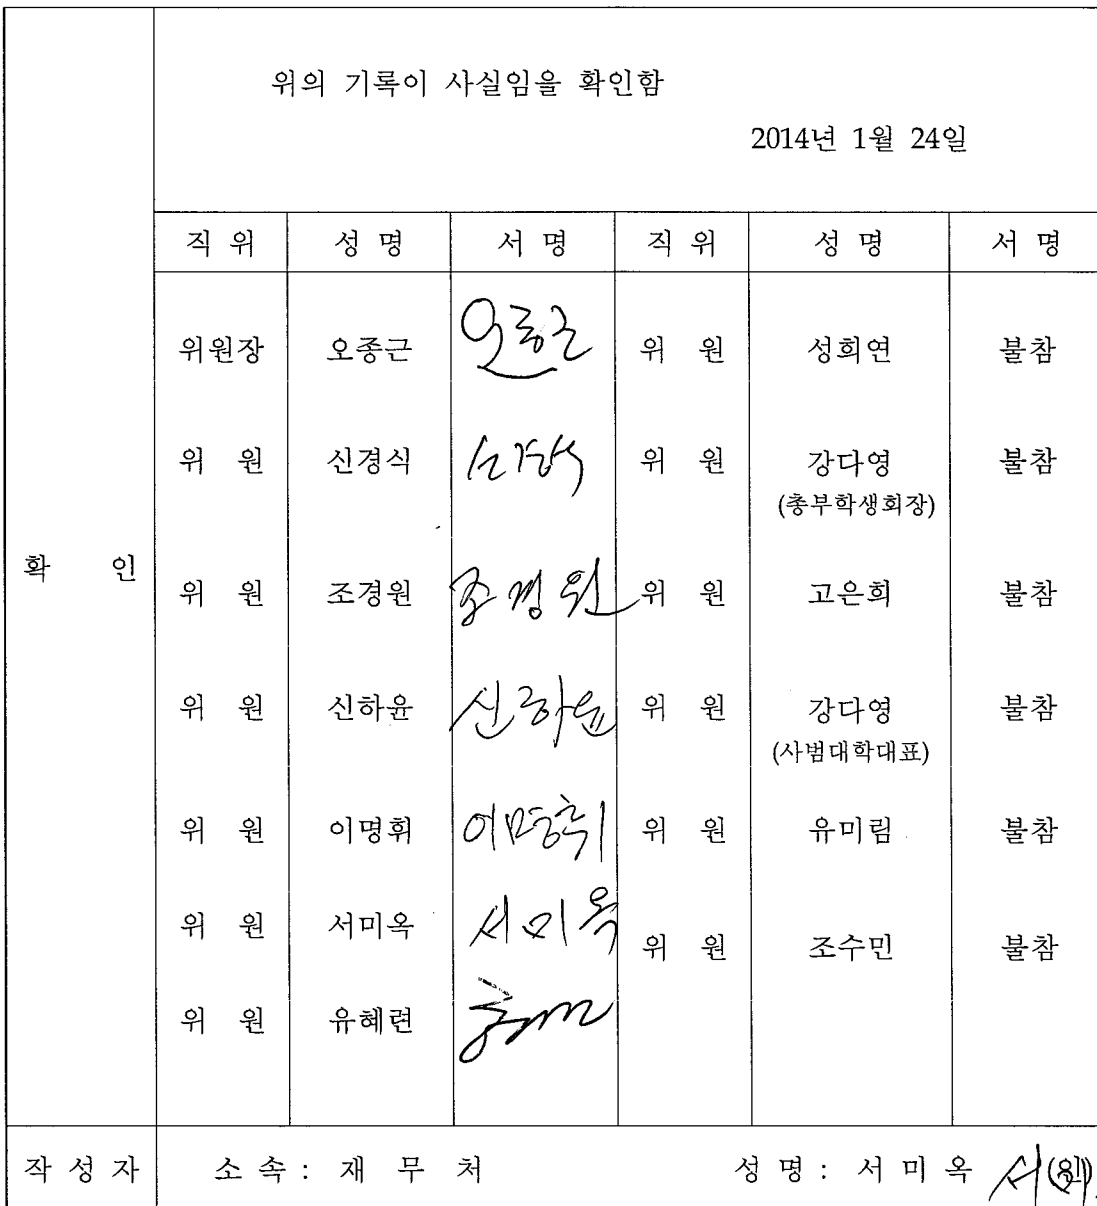 위의 기록이 사실임을 확인함
2014년 1월 24일
직 위 성 명 서 명 직 위 성 명 서 명
위원장 오종근 오종근 위 원 성희연 불참
위 원 신경식 신경식 위 원 강다영 불참
(총부학생회장)
확 인
위 원 조경원 조경원 위 원 고은희 불참
위 원 신하윤 신하윤 위 원 강다영 불참
(사범대학대표)
위 원 이명휘 이명휘 위 원 유미림 불참
위 원 서미옥 서미옥 위 원 조수민 불참
위 원 유혜련
작 성 자 소 속 : 재 무 처 성 명 : 서 미 옥 서 (인)